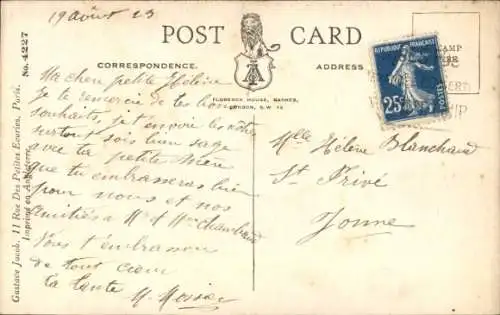 19 août 23
POST CARD
CORRESPONDENCE.
ADDRESS
FLORENCE HOUSE, BARNES,
LONDON, S.W. 13
Ma chère petite Hélène
Je te remercie de tes bons
souhaits, je t'envoie les nôtres
surtout sois bien sage
avec ta petite Mère
que tu embrasseras bien
pour nous et nos
amitiés a Mr et Mme Chambaud
Nous t'embrassons
de tout cœur
ta tante
REPUBLIQUE FRANÇAISE
25c
POSTES
Mlle Hélène Blanchard
St Privé
Yonne
Gustave Jacob, 11 Rue Des Petites Ecuries, Paris.
Imprimé en Angleterre.
No. 4227